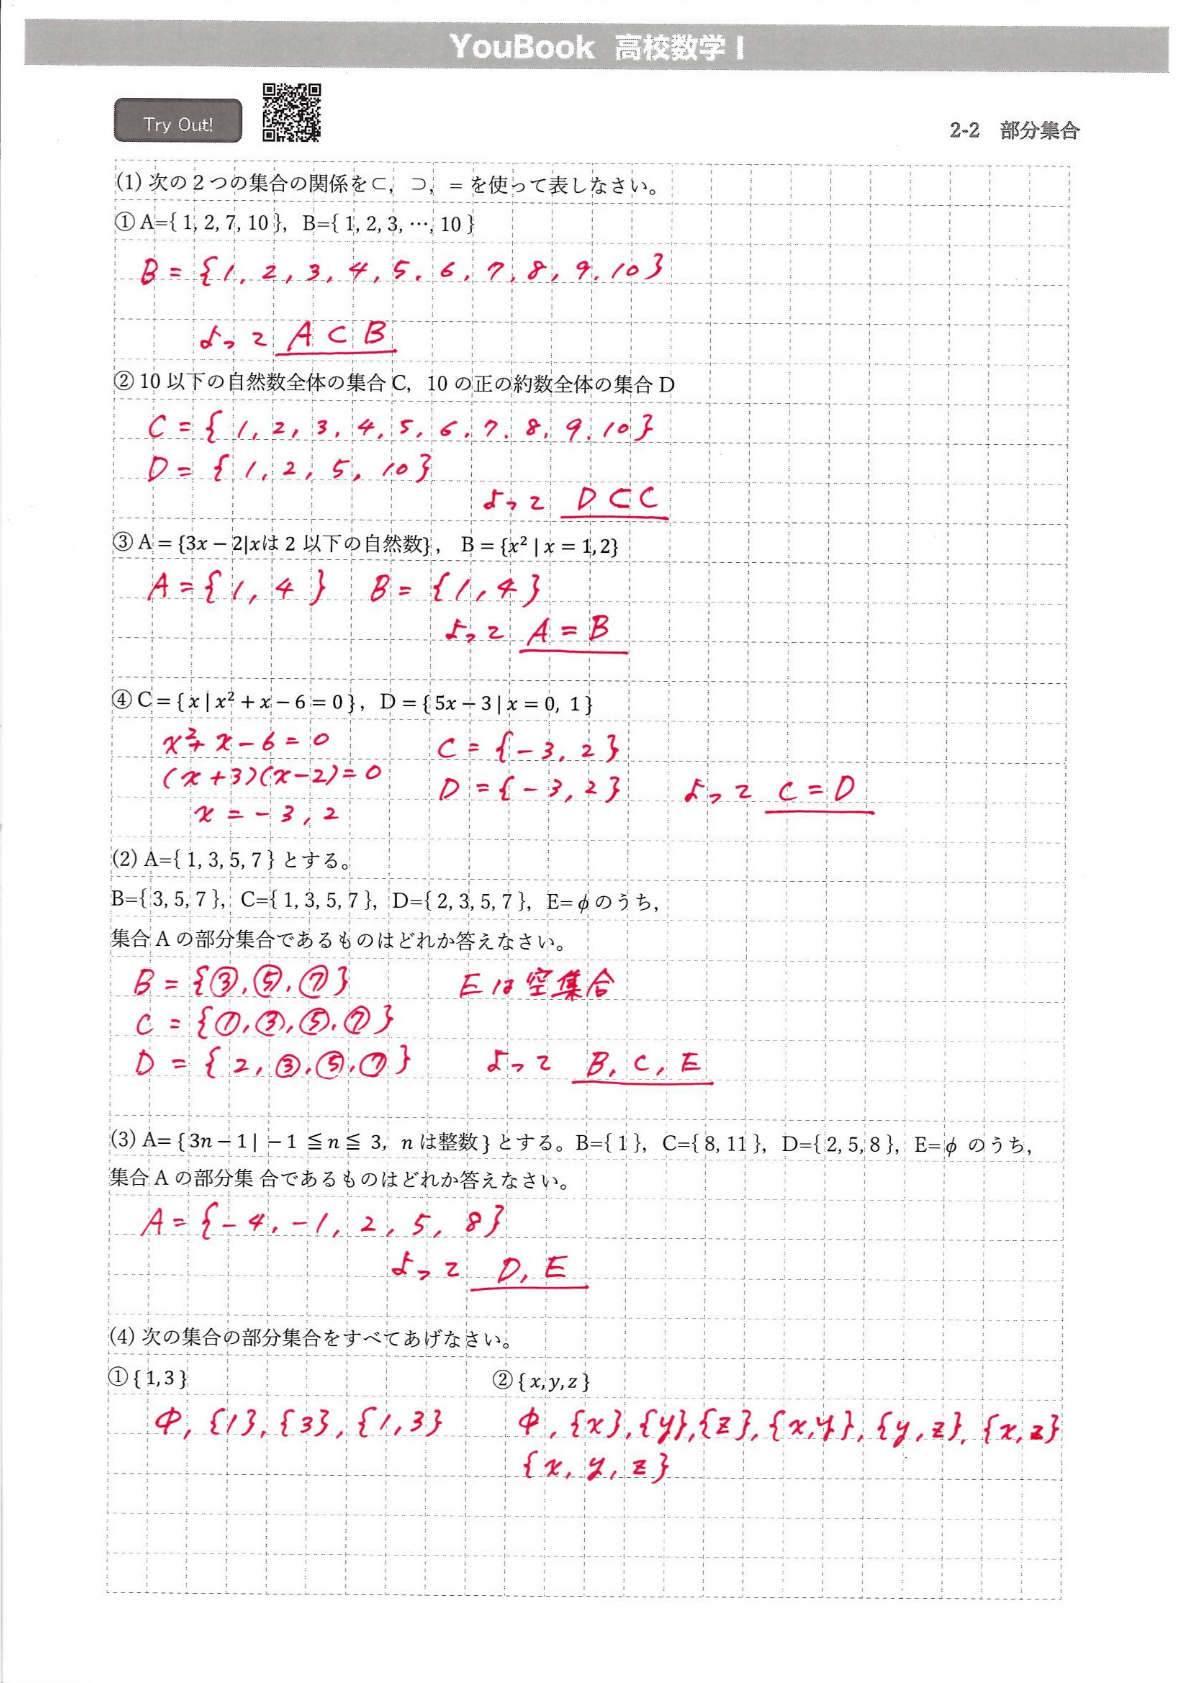 YouBook 高校数学 I
Try Out!
2-2 部分集合
(1) 次の2つの集合の関係を⊂, ⊃, = を使って表しなさい。
① A={ 1, 2, 7, 10 }, B={ 1, 2, 3, …, 10 }
B = {1, 2, 3, 4, 5, 6, 7, 8, 9, 10}
よって A ⊂ B
② 10 以下の自然数全体の集合 C, 10 の正の約数全体の集合 D
C = { 1, 2, 3, 4, 5, 6, 7, 8, 9, 10}
D = { 1, 2, 5, 10}
よって D ⊂ C
③ A = {3x − 2|xは 2 以下の自然数}, B = {x² | x = 1, 2}
A = {1, 4 } B = {1, 4}
よって A = B
④ C = { x | x² + x − 6 = 0 }, D = { 5x − 3 | x = 0, 1 }
x² + x − 6 = 0 C = {−3, 2}
(x + 3)(x − 2) = 0 D = {−3, 2} よって C = D
x = −3, 2
(2) A={ 1, 3, 5, 7 } とする。
B={ 3, 5, 7 }, C={ 1, 3, 5, 7 }, D={ 2, 3, 5, 7 }, E= ϕ のうち,
集合 A の部分集合であるものはどれか答えなさい。
B = {③, ⑤, ⑦} E は 空集合
C = {①, ③, ⑤, ⑦}
D = { 2, ③, ⑤, ⑦} よって B, C, E
(3) A= { 3n − 1 | −1 ≦ n ≦ 3, n は整数 } とする。B={ 1 }, C={ 8, 11 }, D={ 2, 5, 8 }, E= ϕ のうち,
集合 A の部分集 合であるものはどれか答えなさい。
A = {−4, −1, 2, 5, 8}
よって D, E
(4) 次の集合の部分集合をすべてあげなさい。
① { 1, 3 } ② { x, y, z }
Φ, {1}, {3}, {1, 3} Φ, {x}, {y}, {z}, {x, y}, {y, z}, {x, z}
{x, y, z}